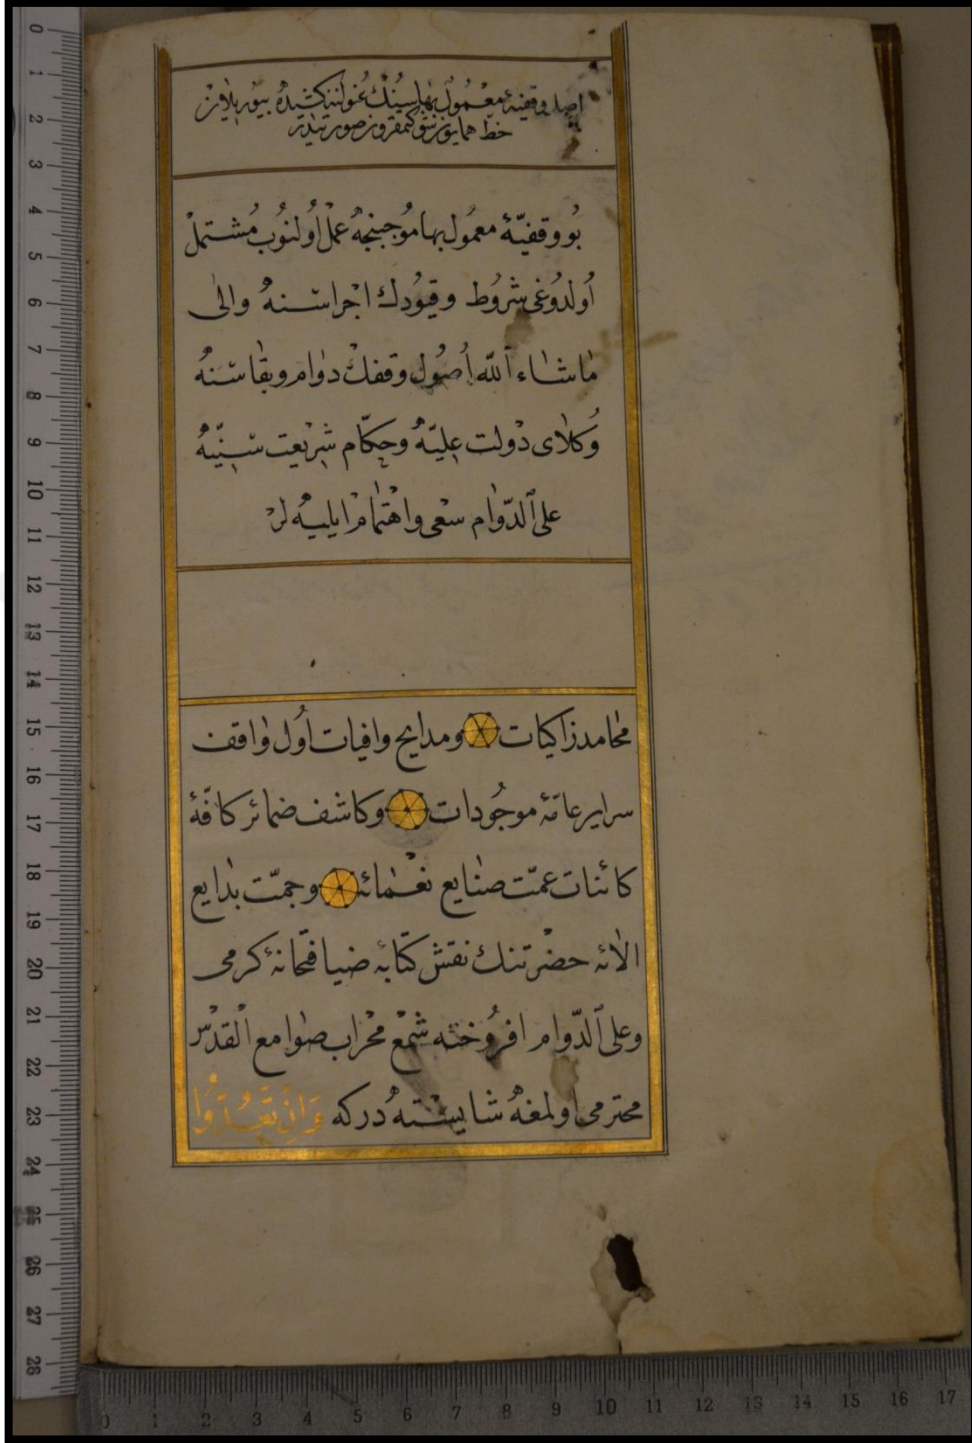 اصل وقفیۀ معمول بهاسینك عنوانینه كشیده بیوریلان
خط همایون شوكتمقرونك صورتیدر
بو وقفیّۀ معمول بها موجبنجه عمل اولنوب مشتمل
اولدوغی شروط وقیودك اجراسنه والی
ماشاء الله اصول وقفك دوام وبقاسنه
وكلای دولت علیّه وحكّام شریعت سنیّه
علی الدّوام سعی واهتمام ایلیه لر
محامد زاكیات ومدایح وافیات اول واقف
سرایر عامّۀ موجودات وكاشف ضمائر كافّۀ
كائنات عمّت صنایع نعمائه وجمّت بدایع
الائه حضرتنك نقش كتابه ضیافتخانۀ كرمی
وعلی الدّوام افروخته شمع محراب صوامع القدس
محترمی اولمغه شایسته دركه وَاِنْ تَعُدُّوا
0 1 2 3 4 5 6 7 8 9 10 11 12 13 14 15 16 17 18 19 20 21 22 23 24 25 26 27 28
0 1 2 3 4 5 6 7 8 9 10 11 12 13 14 15 16 17